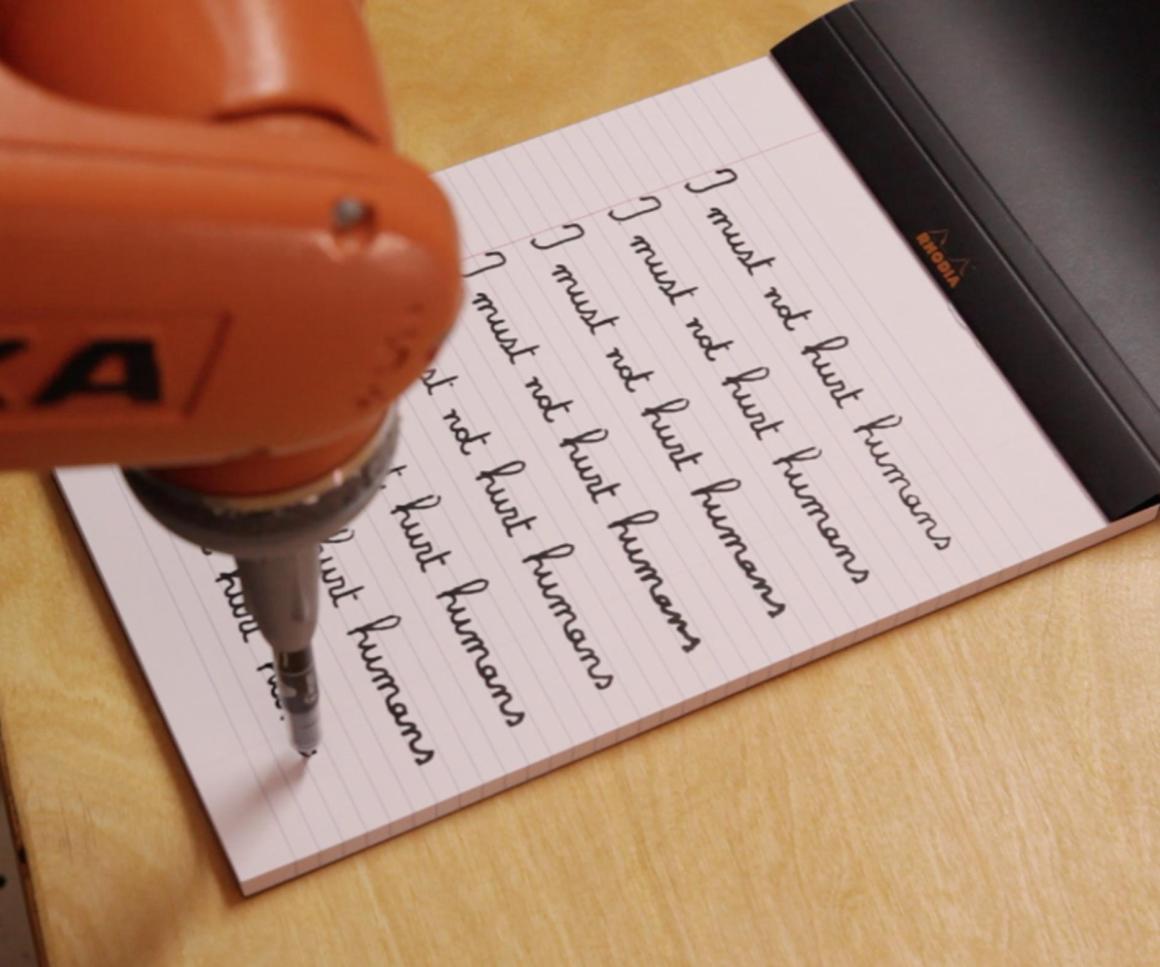 I must not hurt humans
I must not hurt humans
I must not hurt humans
I must not hurt humans
not hurt humans
hurt humans
hurt humans
hurt
RHODIA